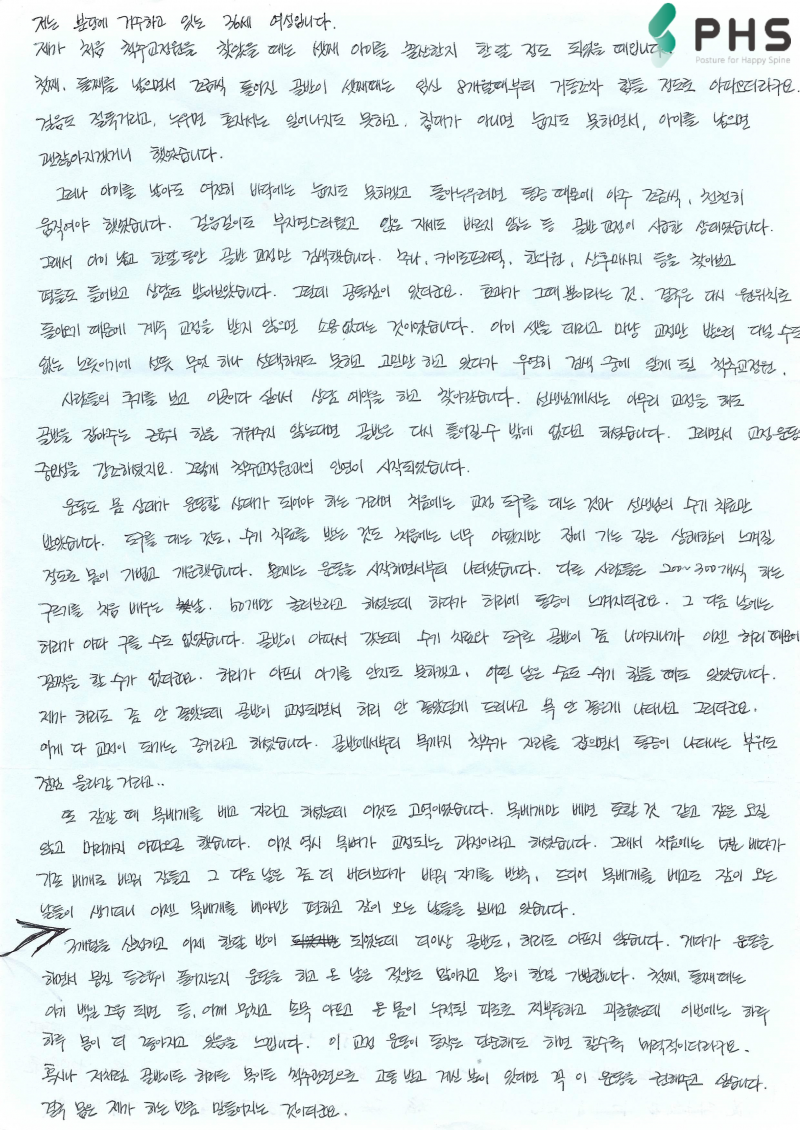 저는 분당에 거주하고 있는 36세 여성입니다.
PHS
Posture for Happy Spine
제가 처음 척추교정원을 찾았을 때는 셋째 아이를 출산한지 한 달 정도 되었을 때입니다
첫째, 둘째를 낳으면서 조금씩 틀어진 골반이 셋째때는 임신 8개월때부터 거동조차 힘들 정도로 아파오더라구요.
걸음도 절룩거리고, 누우면 혼자서는 일어나지도 못하고, 침대가 아니면 눕지도 못하면서, 아이를 낳으면
괜찮아지겠거니 했었습니다.
그러나 아이를 낳아도 여전히 바닥에는 눕지도 못하겠고 돌아누우려면 통증 때문에 아주 조금씩, 천천히
움직여야 했었습니다. 걸음걸이도 부자연스러웠고 앉은 자세도 바르지 않는 등 골반 교정이 시급한 상태였습니다.
그래서 아이 낳고 한달 동안 골반 교정만 검색했습니다. 추나, 카이로프라틱, 한의원, 산후마사지 등을 찾아보고
평들도 들어보고 상담도 받아보았습니다. 그런데 공통점이 있더군요. 효과가 그때 뿐이라는 것. 결국은 다시 원위치로
돌아오기 때문에 계속 교정을 받지 않으면 소용없다는 것이었습니다. 아이 셋을 데리고 마냥 교정만 받으러 다닐 수도
없는 노릇이기에 선뜻 무엇 하나 선택하지도 못하고 고민만 하고 있다가 우연히 검색 중에 알게 된 척추교정원.
사람들의 후기를 보고 이곳이다 싶어서 상담 예약을 하고 찾아갔습니다. 선생님께서는 아무리 교정을 해도
골반을 잡아주는 근육의 힘을 키워주지 않는다면 골반은 다시 틀어질 수 밖에 없다고 하셨습니다. 그러면서 교정운동의
중요성을 강조하셨지요. 그렇게 척추교정원과의 인연이 시작되었습니다.
운동도 몸 상태가 운동할 상태가 되어야 하는 거라며 처음에는 교정 도구를 대는 것과 선생님의 수기 치료만
받았습니다. 도구를 대는 것도, 수기 치료를 받는 것도 처음에는 너무 아팠지만 집에 가는 길은 상쾌함이 느껴질
정도로 몸이 가볍고 개운했습니다. 문제는 운동을 시작하면서부터 나타났습니다. 다른 사람들은 200~300개씩 하는
구르기를 처음 배우는 날. 50개만 굴러보라고 하셨는데 하다가 허리에 통증이 느껴지더군요. 그 다음 날에는
허리가 아파 구를 수도 없었습니다. 골반이 아파서 갔는데 수기 치료와 도구로 골반이 좀 나아지니까 이젠 허리 때문에
꼼짝을 할 수가 없더군요. 허리가 아프니 아기를 안지도 못하겠고, 어떤 날은 숨도 쉬기 힘들 때도 있었습니다.
제가 허리도 좀 안 좋았는데 골반이 교정되면서 허리 안 좋았던게 드러나고 목 안 좋은게 나타나고 그러더군요.
이게 다 교정이 되가는 증거라고 하셨습니다. 골반에서부터 목까지 척추가 자리를 잡으면서 통증이 나타나는 부위도
점점 올라갈 거라고..
또 잠잘 때 목베개를 베고 자라고 하셨는데 이것도 고역이었습니다. 목베개만 베면 토할 것 같고 잠은 오질
않고 머리까지 아파오곤 했습니다. 이것 역시 목뼈가 교정되는 과정이라고 하셨습니다. 그래서 처음에는 베다가
기존 베개로 바꿔 잠들고 그 다음 날은 좀 더 버텨보다가 바꿔 자기를 반복, 드디어 목베개를 베고도 잠이 오는
날들이 생기더니 이젠 목베개를 베야만 편하고 잠이 오는 날들을 보내고 있습니다.
3개월을 신청하고 이제 한달 반이 되었는데 더이상 골반도, 허리도 아프지 않습니다. 게다가 운동을
하면서 뭉친 등근육이 풀어지는지 운동을 하고 온 날은 젖양도 많아지고 몸이 한결 가볍습니다. 첫째, 둘째 때는
아기 백일 즈음 되면 등, 어깨 뭉치고 손목 아프고 온 몸이 누적된 피로로 찌뿌둥하고 괴로웠는데 이번에는 하루
하루 몸이 더 좋아지고 있음을 느낍니다. 이 교정 운동이 동작은 단순해도 하면 할수록 매력적이더라구요.
혹시나 저처럼 골반이든 허리든 목이든 척추관련으로 고통 받고 계신 분이 있다면 꼭 이 운동을 권해주고 싶습니다.
결국 몸은 제가 하는 만큼 만들어지는 것이더군요.